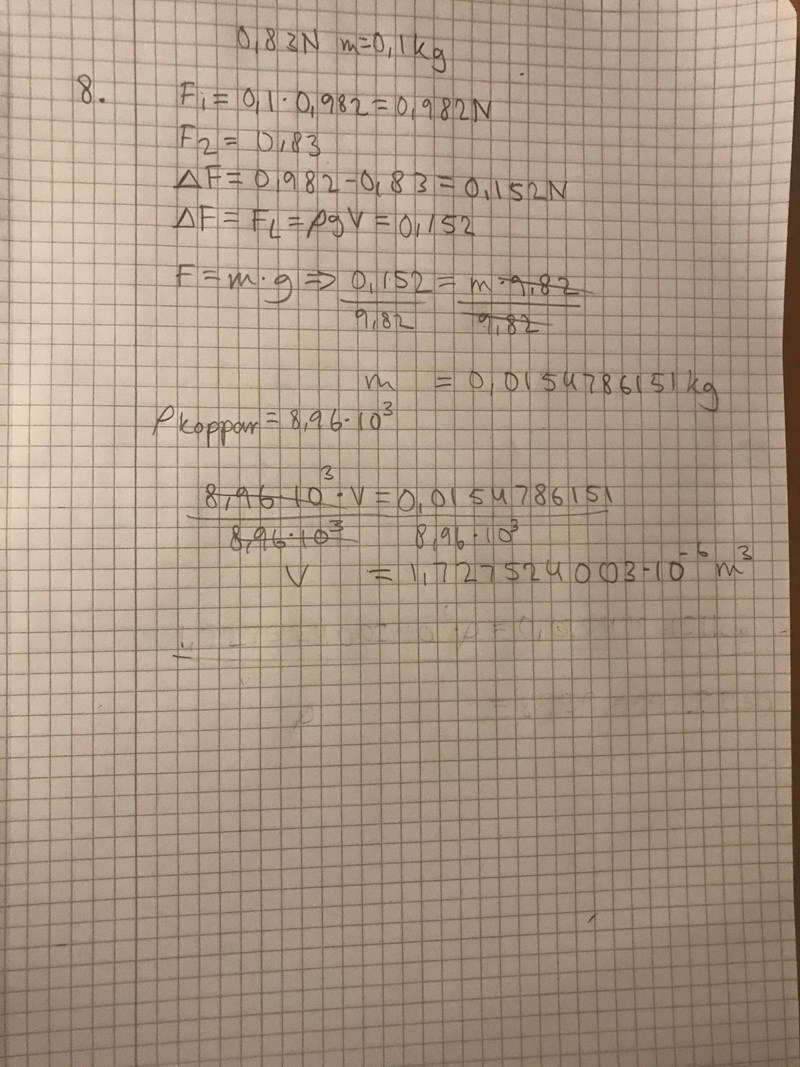 0,83N m=0,1kg
8. F₁= 0,1·0,982=0,982N
F₂= 0,83
ΔF= 0,982-0,83=0,152N
ΔF= F_L=ρgV=0,152
F=m·g⇒ 0,152 = m·9,82
9,82 9,82
m = 0,0154786151kg
ρkoppar=8,96·10³
8,96·10³·V=0,0154786151
8,96·10³ 8,96·10³
V =1,727524003·10⁻⁶ m³